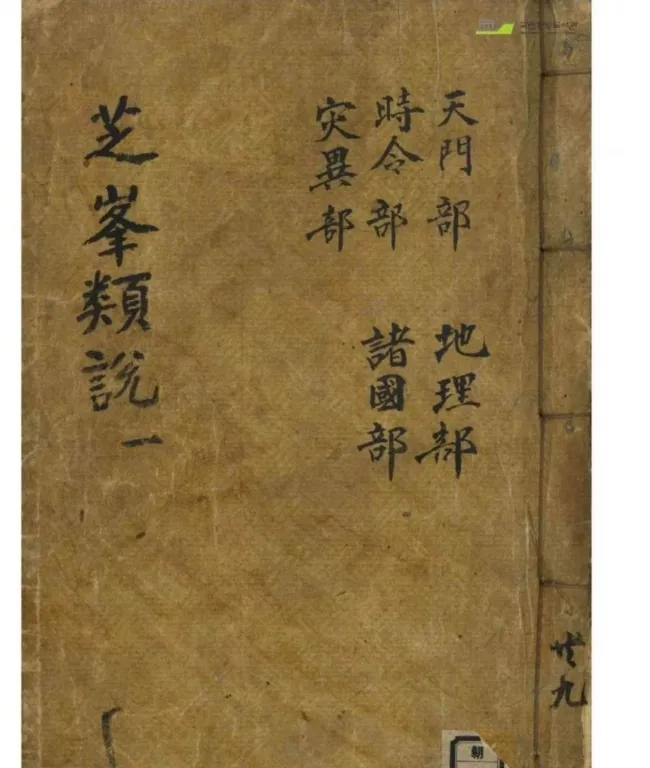 天門部 地理部
時令部 諸國部
灾異部
芝峯類說 一
卄九
朝